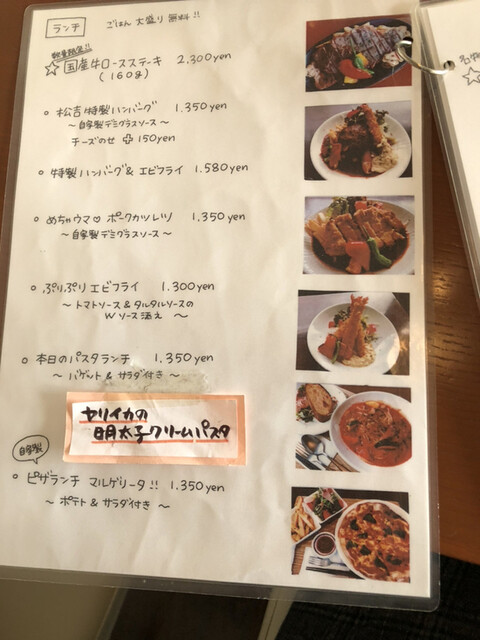 ランチ ごはん 大盛り 無料!!
数量限定!!
☆ 国産牛ロースステーキ 2,300yen
(160g)
○ 松吉特製ハンバーグ 1.350yen
〜自家製デミグラスソース〜
チーズのせ ✚ 150yen
○ 特製ハンバーグ & エビフライ 1.580yen
○ めちゃウマ♡ ポークカツレツ 1,350yen
〜自家製デミグラスソース〜
○ ぷりぷり エビフライ 1.300yen
〜トマトソース & タルタルソースの
Wソース添え 〜
○ 本日のパスタランチ 1.350yen
〜 バゲット & サラダ付き 〜
ヤリイカの
明太子クリームパスタ
自家製
○ ピザランチ マルゲリータ!! 1.350yen
〜 ポテト & サラダ付き 〜